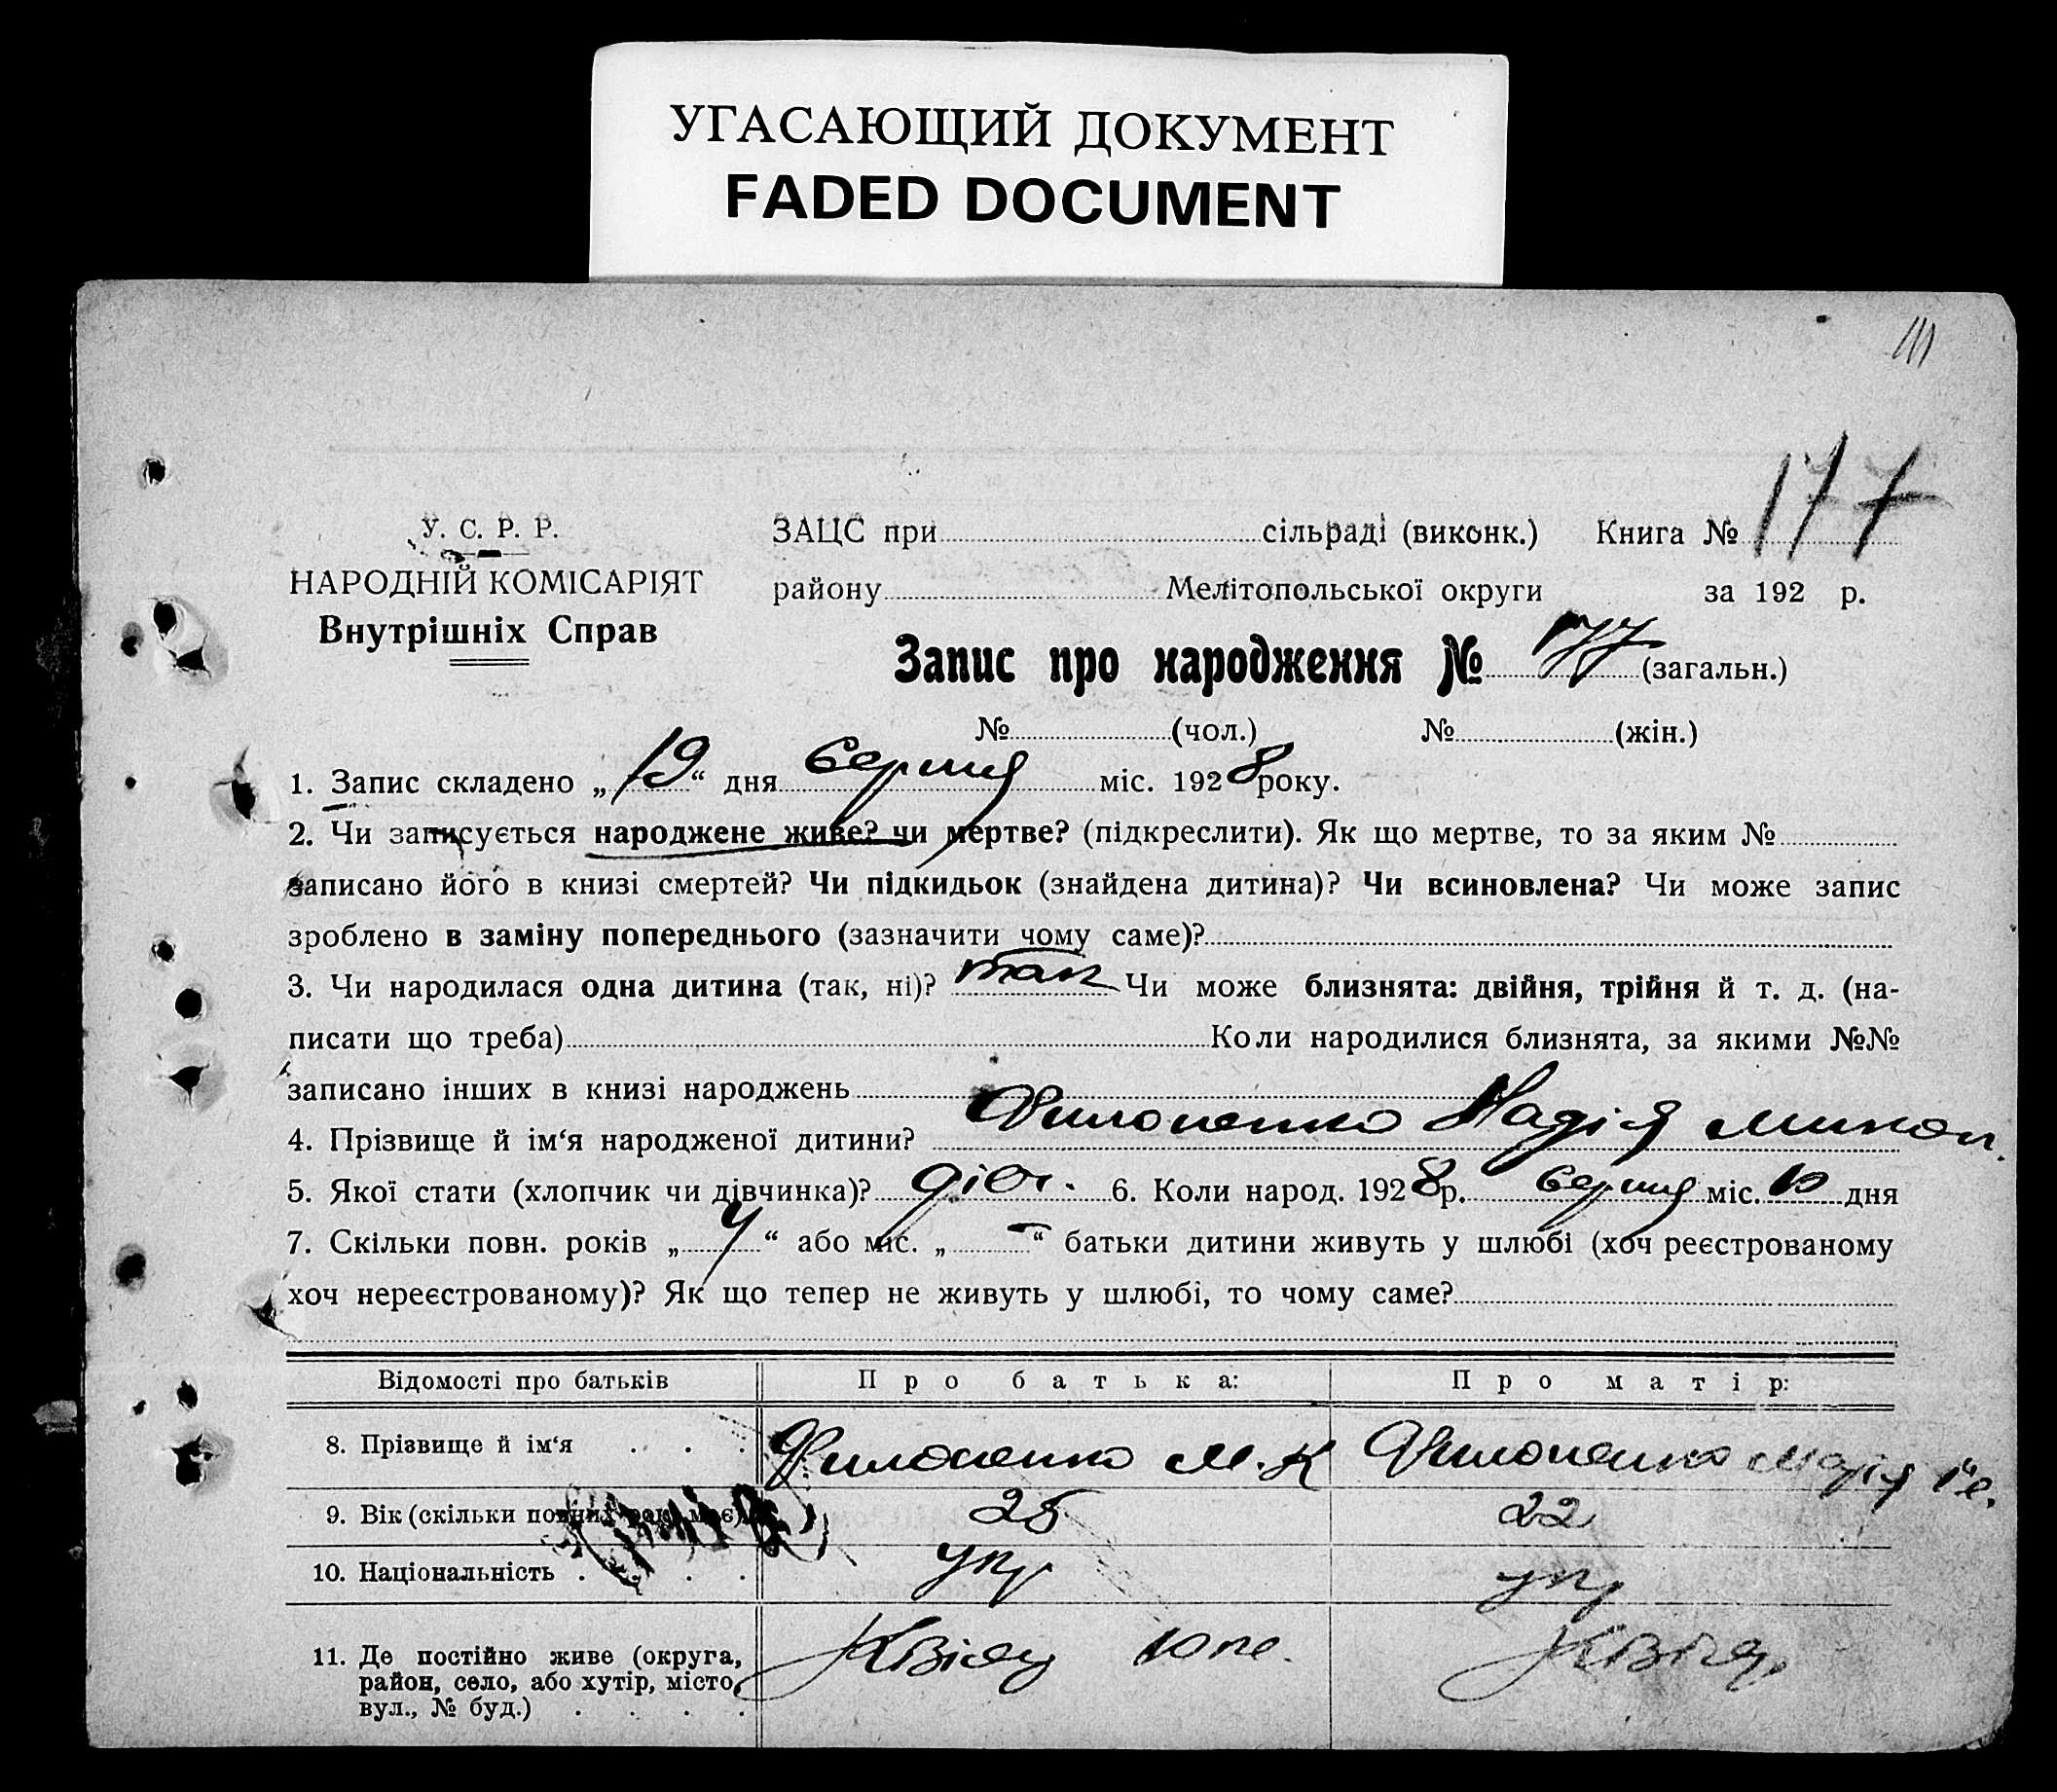 УГАСАЮЩИЙ ДОКУМЕНТ
FADED DOCUMENT
У. С. Р. Р.
НАРОДНІЙ КОМІСАРІЯТ
Внутрішніх Справ
ЗАЦС при сільраді (виконк.) Книга № 177
району Мелітопольської округи за 192 р.
Запис про народження № 177 (загальн.)
№ (чол.) № (жін.)
1. Запис складено „19“ дня Серпня міс. 1928 року.
2. Чи записується народжене живе? чи мертве? (підкреслити). Як що мертве, то за яким №
записано його в книзі смертей? Чи підкидьок (знайдена дитина)? Чи всиновлена? Чи може запис
зроблено в заміну попереднього (зазначити чому саме)?
3. Чи народилася одна дитина (так, ні)? так Чи може близнята: двійня, трійня й т. д. (на-
писати що треба) Коли народилися близнята, за якими №№
записано інших в книзі народжень
4. Прізвище й ім‘я народженої дитини? Филоненко Надія Микол.
5. Якої стати (хлопчик чи дівчинка)? дівч. 6. Коли народ. 1928 р. Серпня міс. 10 дня
7. Скільки повн. років „4“ або міс. „—“ батьки дитини живуть у шлюбі (хоч реєстрованому
хоч нереєстрованому)? Як що тепер не живуть у шлюбі, то чому саме?
Відомості про батьків Про батька: Про матір:
8. Прізвище й ім‘я . . . Филоненко М. К Филоненко Марія
9. Вік (скільки повних рок. має) 25 22
10. Національність . . . укр укр
11. Де постійно живе (округа,
район, село, або хутір, місто,
вул., № буд.) . . . .